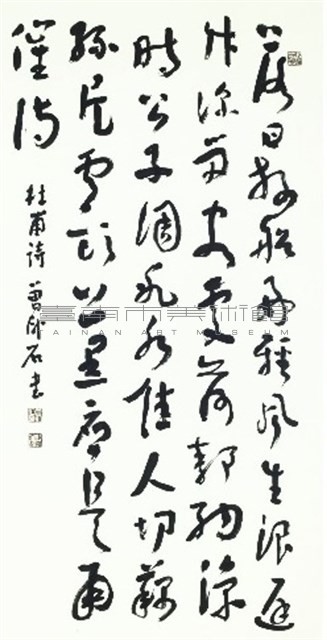 落日放船好輕風生浪遲
竹深留客處荷靜納涼
時公子調冰水佳人切藕
絲片雲頭上黑應是雨
催詩
杜甫詩 曾石書
臺南市美術館
TAINAN ART MUSEUM